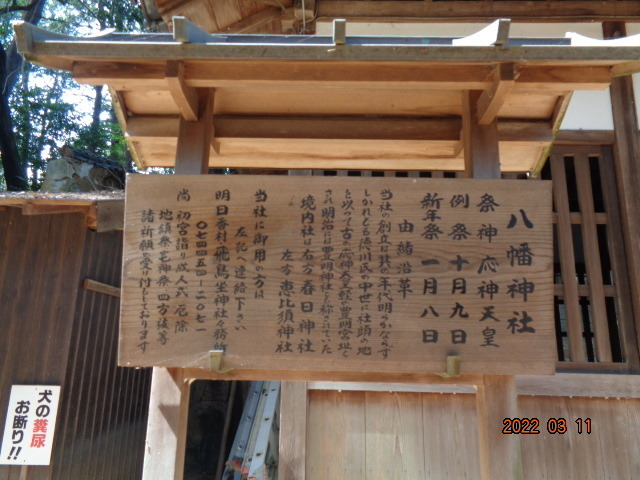 八幡神社
祭神 応神天皇
例祭 十月九日
新年祭 一月八日
由緒沿革
当社の創立は其の年代明らかならず
しかれども徳川氏の中世に社頭の地
を以つて古の応神天皇軽の豊明宮址と
され明治には豊明神社と称されていた
境内社は右方 春日神社
左方 恵比須神社
当社に御用の方は
左記へ連絡下さい
明日香村飛鳥坐神社々務所
〇七四四五四-二〇七一
尚 初宮詣り成人式 厄除
地鎮祭竃神祭四方祓等
諸祈願も受け付しております
犬の糞尿
お断り!!
2022 03 11